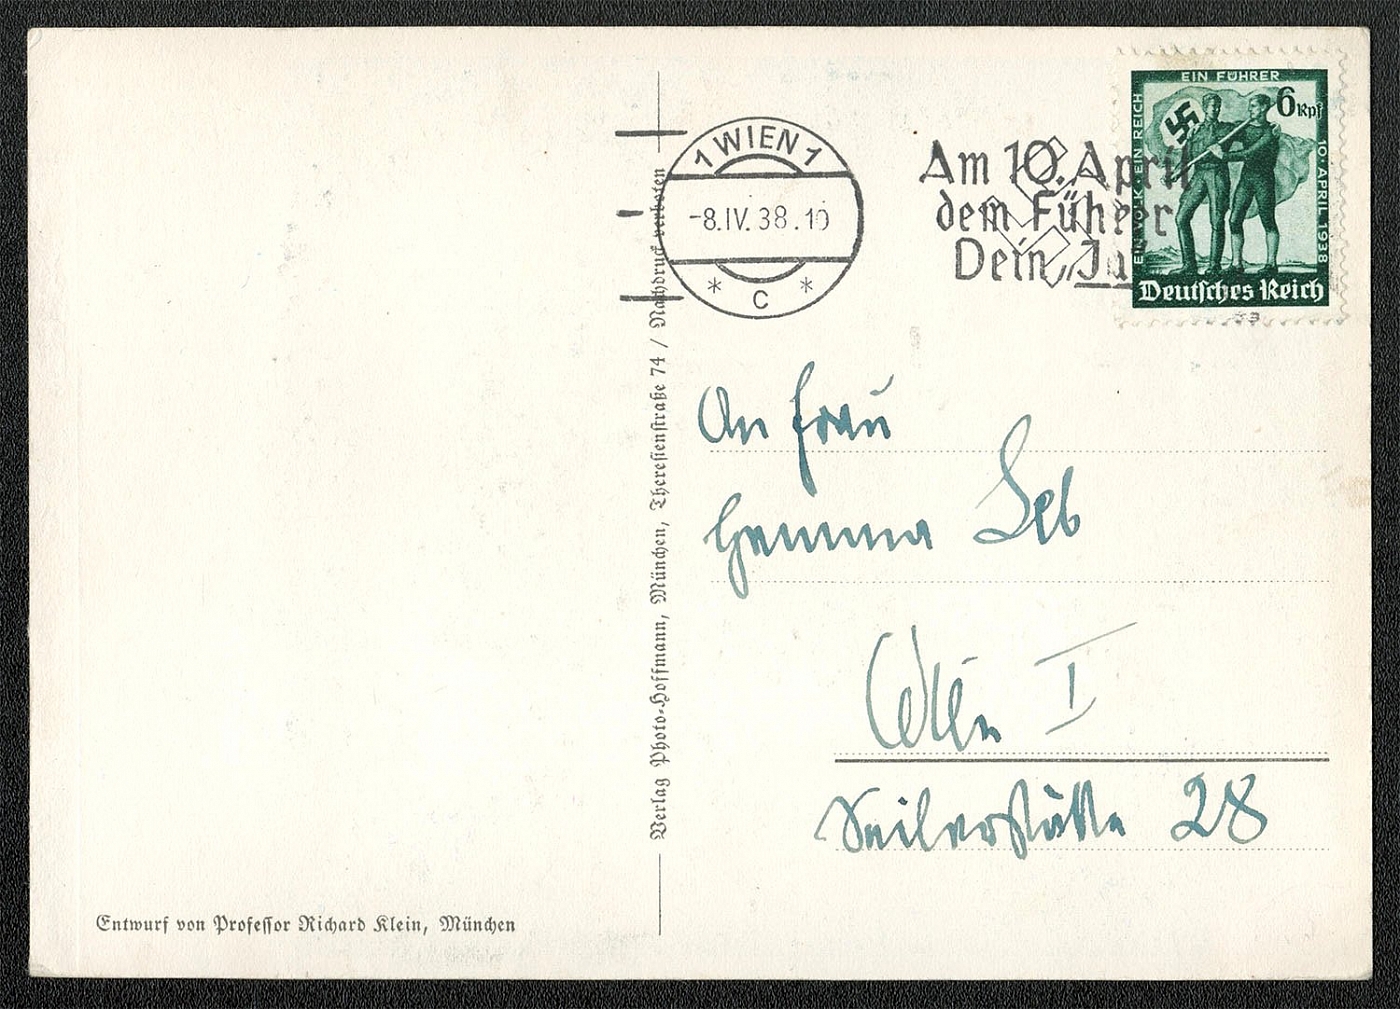 1 WIEN 1
-8.IV.38.10
* C *
Am 10. April
dem Führer
Dein Ja
EIN VOLK EIN REICH
EIN FÜHRER
10. APRIL 1938
6 Rpf
Deutsches Reich
An Frau
Gemma
Wien I
Seilerstätte 28
Verlag Photo-Hoffmann, München, Theresienstraße 74 / Nachdruck verboten
Entwurf von Professor Richard Klein, München